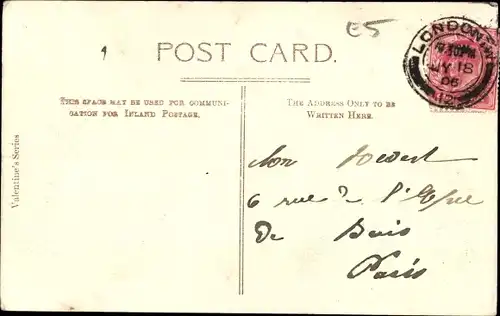 E5
1
POST CARD.
LONDON
7.30PM
MY 18
06
THIS SPACE MAY BE USED FOR COMMUNI-
CATION FOR INLAND POSTAGE.
THE ADDRESS ONLY TO BE
WRITTEN HERE.
Valentine's Series
Mon
6 rue de l'
De Bais
Paris